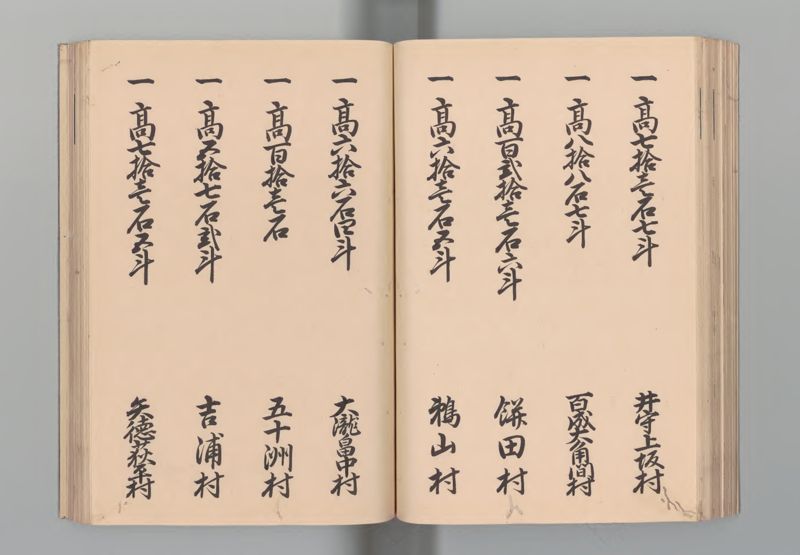 一 高七拾壱石七斗 井守上坂村
一 高八拾八石七斗 百成大角間村
一 高百弐拾壱石六斗 餅田村
一 高六拾壱石五斗 鵜山村
一 高六拾六石四斗 大瀧畠中村
一 高百拾壱石 五十洲村
一 高五拾七石弐斗 吉浦村
一 高七拾壱石五斗 矢徳荻平村